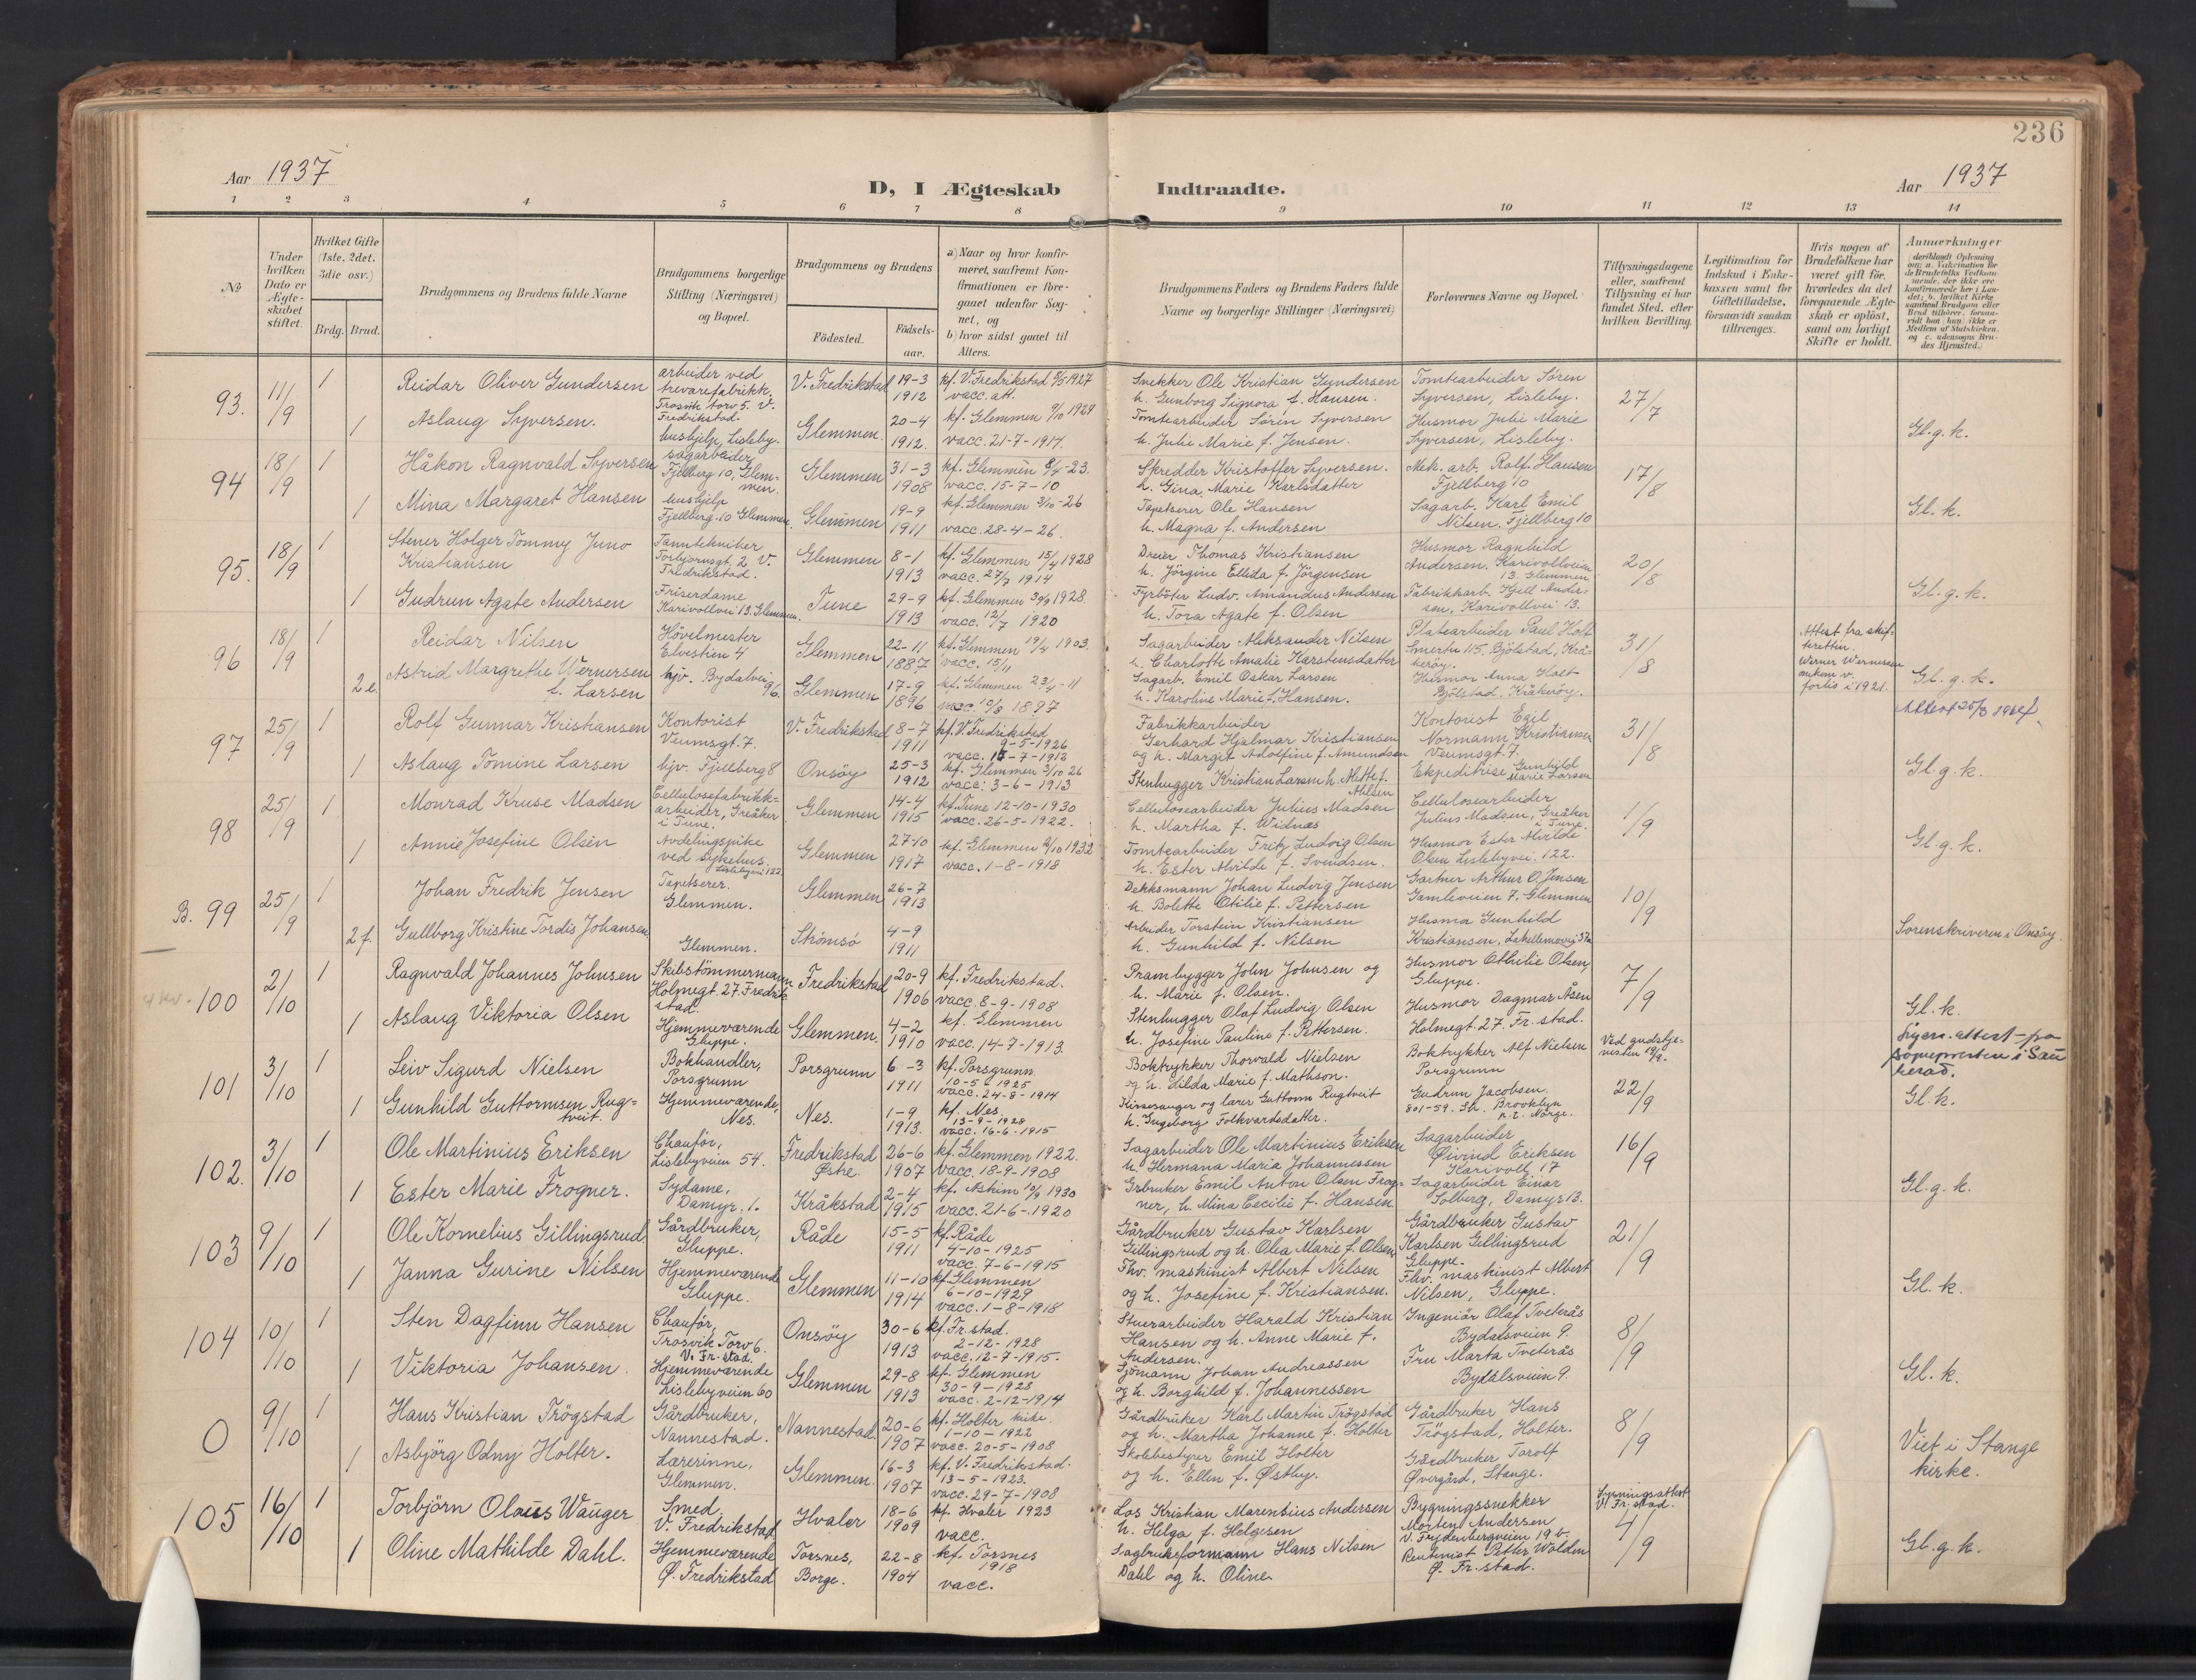 236
Aar 1937
D, I Ægteskab Indtraadte.
Aar 1937
1 2 3 4 5 6 7 8 9 10 11 12 13 14
No
Under hvilken Dato er Ægteskabet stiftet.
Hvilket Gifte (1ste, 2det, 3die osv.)
Brdg. Brud.
Brudgommens og Brudens fulde Navne
Brudgommens borgerlige Stilling (Næringsvei) og Bopæl.
Brudgommens og Brudens
Födested. Födsels-aar.
a) Naar og hvor konfirmeret, saafremt Konfirmationen er foregaaet udenfor Sognet, og
b) hvor sidst gaaet til Alters.
Brudgommens Faders og Brudens Faders fulde Navne og borgerlige Stillinger (Næringsvei)
Forlovernes Navne og Bopæl.
Tillysningsdagene eller, saafremt Tillysning ei har fundet Sted, efter hvilken Bevilling.
Legitimation for Indskud i Enkekassen samt for Giftetilladelse, forsaavidt saadan tiltrænges.
Hvis nogen af Brudefolkene har været gift för, hvorledes da det foregaaende Ægteskab er oplöst, samt om lovligt Skifte er holdt.
Anmerkninger
(deriblandt Oplysning om: a. Vakcination for de Brudefolks Vedkommende, der ikke ere konfirmerede her i Landet; b. hvilket Kirkesamfund Brudgom eller Brud tilhörer, forsaavidt han (hun) ikke er Medlem af Statskirken, og c. udensogns Brudes Hjemsted.)
93. 11/9 1 Reidar Oliver Gundersen arbeider ved trevarefabrikk. Trosvik torv 5. V. Fredrikstad V. Fredrikstad 19-3 1912 kf. V. Fredrikstad 1927 vacc. att. Snekker Ole Kristian Gundersen h. Gunborg Signora f. Hansen. Tomtearbeider Sören Syversen, Lisleby. 27/7
1 Aslaug Syversen. hushjelp, Lisleby. Glemmen 20-4 1912. kf. Glemmen vacc. 21-7-1914. Tomtearbeider Sören Syversen h. Julie Marie f. Jensen. Husmor Julie Marie Syversen, Lisleby. Gl. g. k.
94 18/9 1 Håkon Ragnvald Syversen sagarbeider Fjellberg 10, Glemmen. Glemmen 31-3 1908 kf. Glemmen 8/4-23. vacc. 15-7-10 Skredder Kristoffer Syversen. h. Gina Marie Karlsdatter Mek. arb. Rolf Hansen Fjellberg 10 17/8
1 Mina Margaret Hansen hushjelp Fjellberg 10 Glemmen. Glemmen 19-9 1911 kf. Glemmen 3/10-26 vacc. 28-4-26. Tapetserer Ole Hansen h. Magna f. Andersen Sagarb. Karl Emil Nilsen, Fjellberg 10 Gl. k.
95. 18/9 1 Stener Holger Tommy Juno Kristiansen Tanntekniker Torbjörnsgt. 2 V. Fredrikstad. Glemmen 8-1 1913 kf. Glemmen 15/4 1928 vacc. 27/7 1914 Dreier Thomas Kristiansen h. Jörgine Ellida f. Jörgensen Husmor Ragnhild Andersen. Karivollveien 13. Glemmen 20/8
1 Gudrun Agate Andersen Friserdame Karivollvei 13. Glemmen. Tune 29-9 1913 kf. Glemmen 30/9 1928. vacc. 12/7 1920 Fyrböter Ludv. Amandus Andersen h. Tora Agate f. Olsen Fabrikkarb. Kjell Andersen, Karivollvei 13. Gl. g. k.
96 18/9 1 Reidar Nilsen Hövelmester Elvestien 4 Glemmen 22-11 1887 kf. Glemmen 19/4 1903. vacc. 15/11 Sagarbeider Aleksander Nilsen h. Charlotte Amalie Karstensdatter Platearbeider Paul Holt Smertu 115. Bjölstad, Kråkeröy. 31/8 Attest fra skifteretten. Werner Wernersen omkom v. forlis i 1921.
2 e. Astrid Margrethe Wernersen f. Larsen hjv. Bydalvei 96. Glemmen 17-9 1896 kf. Glemmen 23/4-11 vacc. 10/8 1897 Sagarb. Emil Oskar Larsen h. Karoline Marie f. Hansen. Husmor Anna Holt Bjölstad, Kråkeröy. Gl. g. k.
97 25/9 1 Rolf Gunnar Kristiansen Kontorist Veumsgt. 7. V. Fredrikstad 8-7 1911 kf. V. Fredrikstad 9-5-1926 vacc. 15-7-1912 Fabrikkarbeider Gerhard Hjalmar Kristiansen og h. Margit Adolfine f. Amundsen Kontorist Egil Normann Kristiansen Veumsgt. 7. 31/8
1 Aslaug Tomine Larsen hjv. Fjellberg 8 Onsöy 25-3 1912 kf. Glemmen 3/10 26 vacc. 3-6-1913 Stenhugger Kristian Larsen h. Alette f. Ahlsen Ekspeditrise Gunhild Marie Larsen Gl. g. k.
98 25/9 1 Monrad Kruse Madsen Cellulosefabrikkarbeider, Greåker i Tune. Glemmen 14-4 1915 kf. Tune 12-10-1930 vacc. 26-5-1922. Cellulosearbeider Julius Madsen h. Martha f. Widnæs Cellulosearbeider Julius Madsen, Greåker i Tune. 1/9
1 Annie Josefine Olsen Avdelingspike ved sykehus. Lislebyvei 122 Glemmen 27-10 1917 kf. Glemmen 2/10 1932 vacc. 1-8-1918 Tomtearbeider Fritz Ludvig Olsen h. Ester Alvilde f. Svendsen. Husmor Ester Alvilde Olsen Lislebyvei. 122. Gl. g. k.
B. 99 25/9 1 Johan Fredrik Jensen Tapetserer. Glemmen. Glemmen 26-7 1913 Dekksmann Johan Ludvig Jensen h. Bolette Otilie f. Pettersen Gartner Arthur O. Jensen Gamleveien 7. Glemmen 10/9
2 f. Gullborg Kristine Tordis Johansen. Glemmen. Strömsö 4-9 1911 Arbeider Torstein Kristiansen h. Gunhild f. Nilsen Husmor Gunhild Kristiansen, Sorenskriveren i Onsöy.
100 2/10 1 Ragnvald Johannes Johnsen Skibstömmermann Holmegt. 27. Fredrikstad. Fredrikstad 20-9 1906 kf. Fredrikstad. vacc. 8-9-1908 Prambygger John Johnsen og h. Marie f. Olsen. Husmor Othilie Olsen, Gluppe. 7/9
1 Aslaug Viktoria Olsen Hjemmeværende Gluppe. Glemmen. 4-2 1910 kf. Glemmen vacc. 14-7-1913. Stenhugger Olaf Ludvig Olsen h. Josefine Pauline f. Pettersen. Husmor Dagmar Åsen Holmegt. 27. Fr. stad. Gl. k.
101 3/10 1 Leiv Sigurd Nielsen Bokhandler, Porsgrunn Porsgrunn 6-3 1911 kf. Porsgrunn. 10-5-1925 vacc. 24-8-1914 Boktrykker Thorvald Nielsen og h. Hilda Marie f. Mathson. Boktrykker Alf Nielsen Porsgrunn Ved gudstjenesten 19/9.
1 Gunhild Guttormsen Rugtveit. Hjemmeværende, Nes. Nes. 1-9 1913. kf. Nes. 13-9-1928 vacc. 16-6-1915 Kirkesanger og lærer Guttorm Rugtveit h. Ingeborg Folkvardsdatter. Gudrun Jacobsen. 801-59. St. Brooklyn 22/9 Gl. k.
102. 3/10 1 Ole Martinius Eriksen Chauför, Lislebyveien 54. Fredrikstad Østre. 26-6 1907 kf. Glemmen 1922. vacc. 18-9-1908 Sagarbeider Ole Martinius Eriksen h. Hermana Maria Johannessen Sagarbeider Øivind Eriksen Karivoll 17 16/9
1 Ester Marie Frogner. Sydame, Damyr. 1. Kråkstad 2-4 1915 kf. Askim 10/8 1930 vacc. 21-6-1920 Grbruker Emil Anton Olsen Frogner, h. Mina Cecilie f. Hansen Sagarbeider Einar Solberg, Damyr 13. Gl. g. k.
103 9/10 1 Ole Kornelius Gillingsrud Gårdbruker, Gluppe. Råde 15-5 1911 kf. Råde 4-10-1925 vacc. 7-6-1915 Gårdbruker Gustav Karlsen Gillingsrud og h. Olea Marie f. Olsen Gårdbruker Gustav Karlsen Gillingsrud Gluppe. 21/9
1 Janna Gurine Nilsen Hjemmeværende Gluppe. Glemmen 11-10 1914 kf. Glemmen 6-10-1929 vacc. 1-8-1918 Fhv. maskinist Albert Nilsen og h. Josefine f. Kristiansen. Fhv. maskinist Albert Nilsen, Gluppe. Gl. k.
104 10/10 1 Sten Dagfinn Hansen Chauför, Trosvik Torv 6. V. Fr. stad. Onsöy 30-6 1913 kf. Fr. stad. 2-12-1928 vacc. 12-7-1915- Stuerarbeider Harald Kristian Hansen og h. Anne Marie f. Andersen. Ingeniör Olaf Tveterås Bydalsveien 9. 8/9
1 Viktoria Johansen. Hjemmeværende Lislebyveien 60 Glemmen 29-8 1913 kf. Glemmen 30-9-1928 vacc. 2-12-1914 Sjömann Johan Andreassen og h. Borghild f. Johannessen Fru Marta Tveterås Bydalsveien 9. Gl. k.
0 9/10 1 Hans Kristian Trögstad Gårdbruker, Nannestad. Nannestad 20-6 1907 kf. Holter kirke. 1-10-1922 vacc. 20-5-1908 Gårdbruker Karl Martin Trögstad og h. Martha Johanne f. Holter Gårdbruker Hans Trögstad, Holter. 8/9
1 Asbjörg Odny Holter. Lærerinne, Glemmen. Glemmen. 16-3 1907 kf. V. Fredrikstad. 13-5-1923. vacc. 29-7-1908 Skolebestyrer Emil Holter og h. Ellen f. Østby. Gårdbruker Torolf Øvergård, Stange. Viet i Stange kirke.
105 16/10 1 Torbjörn Olaus Wauger Smed V. Fredrikstad Hvaler 18-6 1909 kf. Hvaler 1923 vacc. Los Kristian Marensius Andersen h. Helga f. Helgesen Bygningssnekker Morten Andersen V. Frydenbergveien 19 b. Lysningsattest V. Fr. stad. 4/9
1 Oline Mathilde Dahl. Hjemmeværende Ø. Fredrikstad Torsnes, Borge. 22-8 1904 kf. Torsnes 1918 vacc. Sagbruksformann Hans Nilsen Dahl og h. Oline Rentenist Petter Walden Ø. Fr. stad. Gl. g. k.